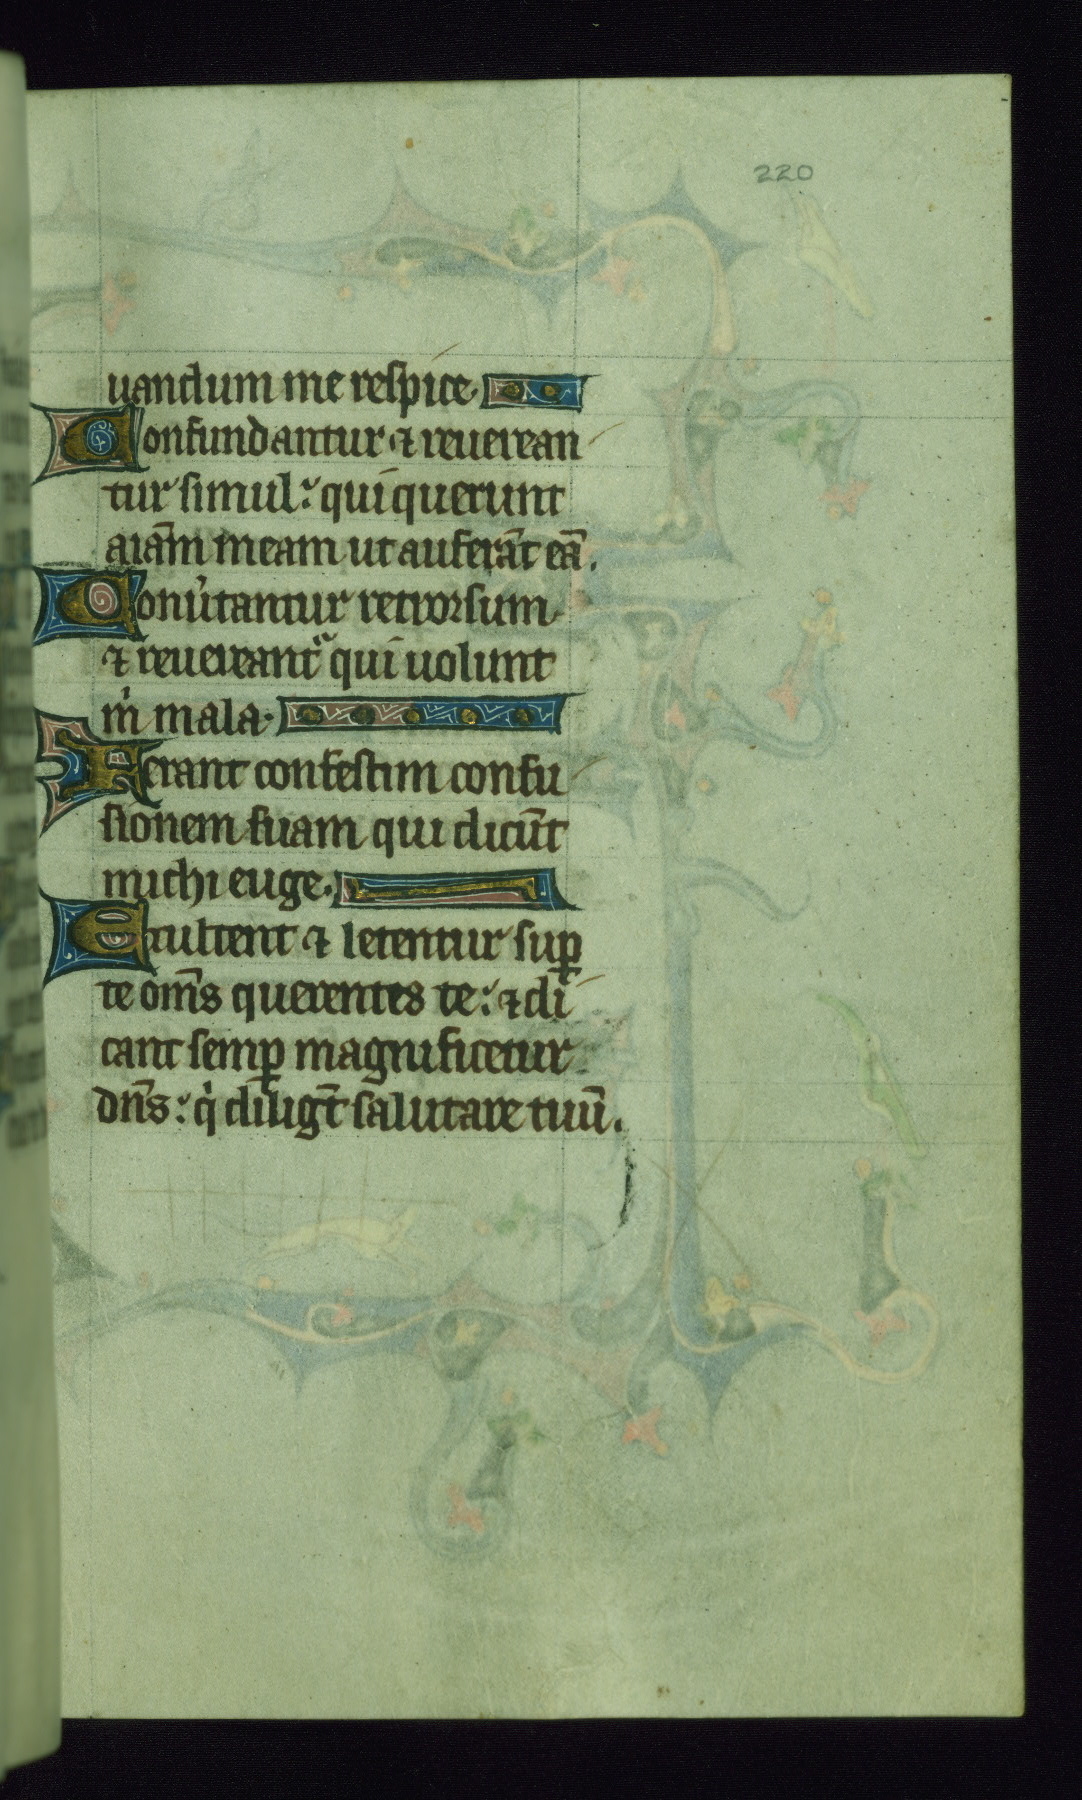 220
uandum me respice.
Confundantur ⁊ reuerean
tur simul: qui querunt
aīam meam ut auferāt eā.
Conu̾tantur retrorsum
⁊ reuereantᷣ qui uolunt
m̍ mala.
Ferant confestim confu
sionem suam qui dicūt
michi euge.
Exultent ⁊ letentur suꝑ
te om̄s querentes te: ⁊ di
cant semꝑ magnificetur
dn̄s: q̍ diligt̄ salutare tuū.